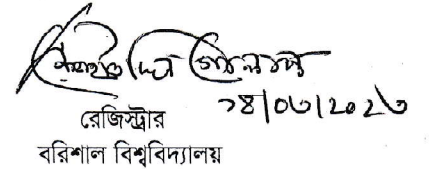 ১৪/০৩/২০২৩
রেজিস্ট্রার
বরিশাল বিশ্ববিদ্যালয়